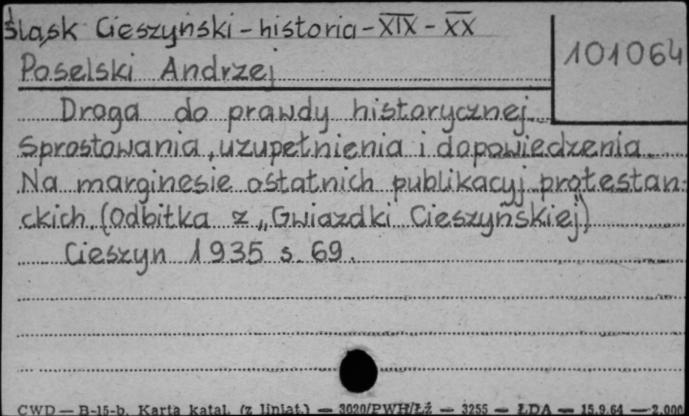 Śląsk Cieszyński - historia - XIX - XX
101064
Poselski Andrzej
Droga do prawdy historycznej
Sprostowania, uzupełnienia i dopowiedzenia
Na marginesie ostatnich publikacyj protestan-
ckich. (Odbitka z „Gwiazdki Cieszyńskiej")
Cieszyn 1935 s. 69.
CWD — B-15-b. Karta katal. (z liniat.) — 3020/PWH/Łż — 3255 — ŁDA — 15.9.64 — 2.000